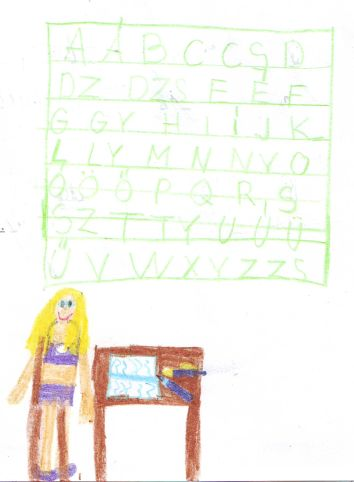 A Á B C CS D
DZ DZS E É F
G GY H I Í J K
L LY M N NY O
Ó Ö Ő P Q R S
SZ T TY U Ú Ü
Ű V W X Y Z ZS